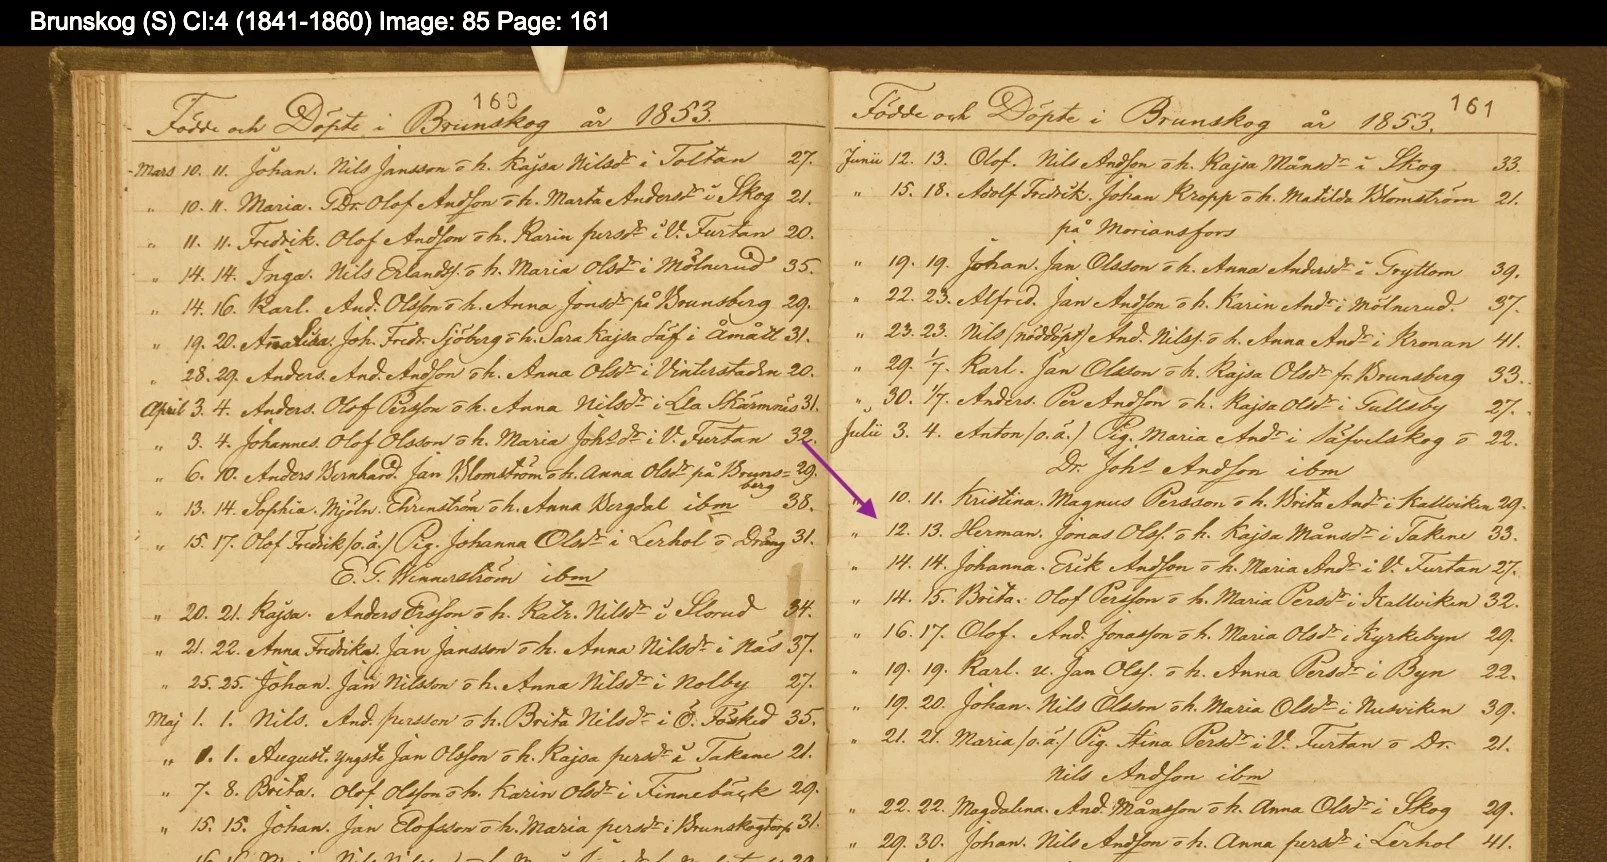 Brunskog (S) CI:4 (1841-1860) Image: 85 Page: 161
160
Födde och Döpte i Brunskog år 1853.
Mars 10. 11. Johan. Nils Jansson o h. Kajsa Nilsdr i Toltan 27.
" 10. 11. Maria. Dr. Olof Andsson o h. Marta Andersdr i Skog 21.
" 11. 11. Fredrik. Olof Andsson o h. Karin persdr i V. Furtan 20.
" 14. 14. Inga. Nils Erlandss. o h. Maria Olsdr i Mölnerud 35.
" 14. 16. Karl. And. Olsson o h. Anna Jonsdr på Brunsberg 29.
" 19. 20. Joh. Fredr. Sjöberg o h. Sara Kajsa Säf i Åmått 31.
" 28. 29. Anders. And. Andsson o h. Anna Olsdr i Vinterstaden 20.
April 3. 4. Anders. Olof Persson o h. Anna Nilsdr i Lla Skärmnäs 31.
" 3. 4. Johannes. Olof Olsson o h. Maria Johsdr i V. Furtan 32.
" 6. 10. Anders Bernhard. Jan Blomström o h. Anna Olsdr på Bruns= 29.
berg
" 13. 14. Sophia. Mjöln. Ehrenström o h. Anna Bergdal ibm 38.
" 15. 17. Olof Fredrik (o.ä.) Pig. Johanna Olsdr i Lerhol o Dräng 31.
E. G. Wennerström ibm
" 20. 21. Kajsa. Anders Ersson o h. Katr. Nilsdr i Slorud 34.
" 21. 22. Anna Fredrika. Jan Jansson o h. Anna Nilsdr i Näs 37.
" 25. 25. Johan. Jan Nilsson o h. Anna Nilsdr i Nolby 27.
Maj 1. 1. Nils. And. persson o h. Brita Nilsdr i Ö. Fösked 35.
" 1. 1. August. yngste Jan Olsson o h. Kajsa persdr i Takene 21.
" 7. 8. Brita. Olof Olsson o h. Karin Olsdr i Finnebäck 29.
" 15. 15. Johan. Jan Elofsson o h. Maria persdr i Brunskogtorp 31.
161
Födde och Döpte i Brunskog år 1853.
Junii 12. 13. Olof. Nils Andsson o h. Kajsa Månsdr i Skog 33.
" 15. 18. Adolf Fredrik. Johan Kropp o h. Matilda Blomström 21.
på Moriansfors
" 19. 19. Johan. Jan Olsson o h. Anna Andersdr i Gryttom 39.
" 22. 23. Alfred. Jan Andsson o h. Karin Andr i Mölnerud. 37.
" 23. 23. Nils (nöddöpt) And. Nilss. o h. Anna Andr i Kronan 41.
" 29. 1/7. Karl. Jan Olsson o h. Kajsa Olsdr fr. Brunsberg 33.
" 30. 1/7. Anders. Per Andsson o h. Kajsa Olsdr i Gullsby 27.
Julii 3. 4. Anton (o.ä.) Pig. Maria Andr i Säfvelskog o 22.
Dr. Johs Andsson ibm
" 10. 11. Kristina. Magnus Persson o h. Brita Andr i Kallviken 29.
" 12. 13. Herman. Jonas Olss. o h. Kajsa Månsdr i Takene 33.
" 14. 14. Johanna. Erik Andsson o h. Maria Andr i V. Furtan 27.
" 14. 15. Brita. Olof Persson o h. Maria Persdr i Kallviken 32.
" 16. 17. Olof. And. Jonasson o h. Maria Olsdr i Kyrkebyn 29.
" 19. 19. Karl. u. Jan Olss. o h. Anna Persdr i Byn 22.
" 19. 20. Johan. Nils Olsson o h. Maria Olsdr i Nusviken 39.
" 21. 21. Maria (o.ä.) Pig. Stina Persdr i V. Furtan o Dr. 21.
Nils Andsson ibm
" 22. 22. Magdalina. And. Månsson o h. Anna Olsdr i Skog 29.
" 29. 30. Johan. Nils Andsson o h. Anna persdr i Lerhol 41.